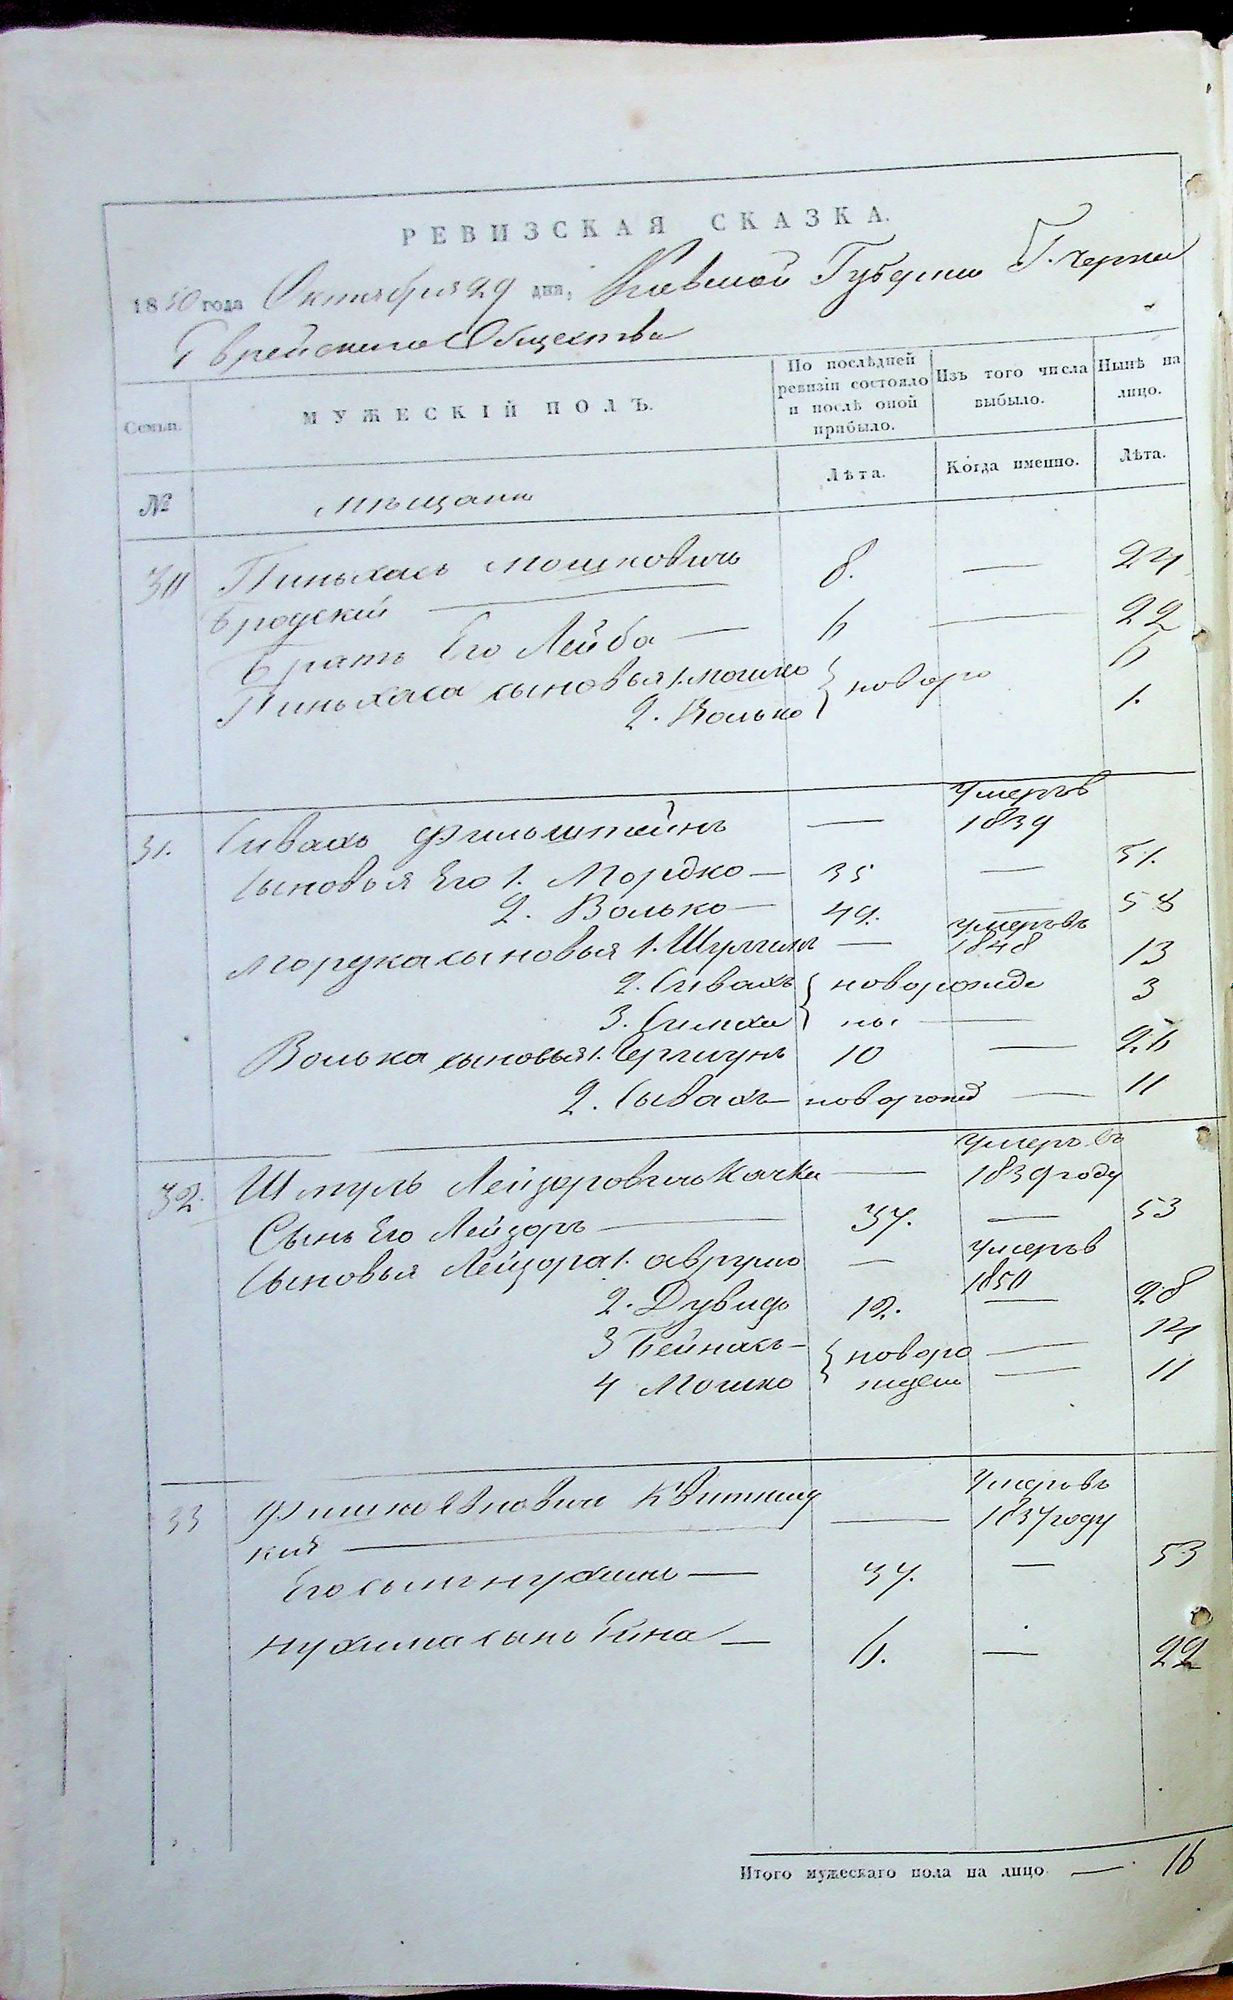 РЕВИЗСКАЯ СКАЗКА.
1850 года Октября 29 дня, Киевской Губернии Г.
Еврейскаго Общества
Семьи.
МУЖЕСКІЙ ПОЛЪ.
По послѣдней ревизіи состояло и послѣ оной прибыло.
Изъ того числа выбыло.
Нынѣ на лицо.
№
мѣщане
Лѣта.
Когда именно.
Лѣта.
30 Пиньхасъ Мошковичь 8. — 24
Бродскій —
Братъ Его Лейба — 6 — 22
Пиньхаса сыновья 1. Мошко } новоро 6
2. Волько 1.
31. Сивахъ Фильштейнъ — Умеръ в 1839
Сыновья Его 1. Мордко — 35 — 51.
2. Волько — 42. — 58
Мордка сыновья 1. — умеръ въ 1848
2. Сивахъ } новорожде 13
3. Симха ны — 3
Волька сыновья 1. 10 — 26
2. Сывахъ — новорожд — 11
32. Шмуль Лейзоровичь Качка — умеръ въ 1839 году
Сынъ Его Лейзоръ — 37. — 53
Сыновья Лейзора 1. — Умеръ в 1850
2. Дувидъ 12. — 28
3 Бейнасъ — } новоро — 14
4 Мошко ждены — 11
33 Фишко Квитниц — Умеръ въ 1837 году
кій —
Его сынъ Нухимъ — 37. — 53
Нухима сынъ — 6. — 22
Итого мужескаго пола на лицо — 16